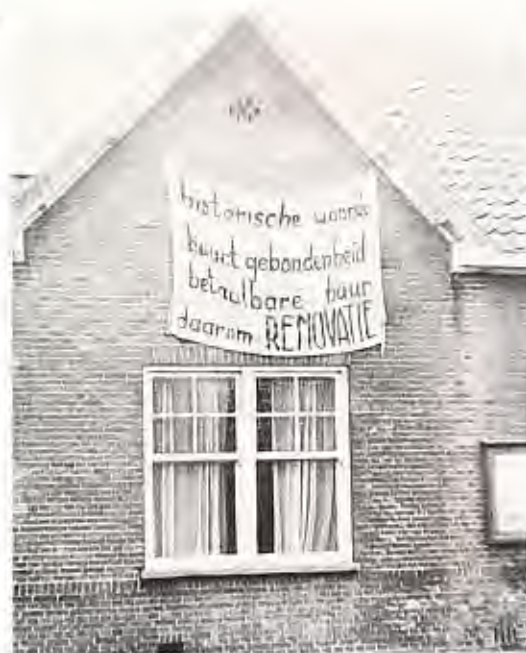 historische waarde
buurt gebondenheid
betaalbare huur
daarom RENOVATIE